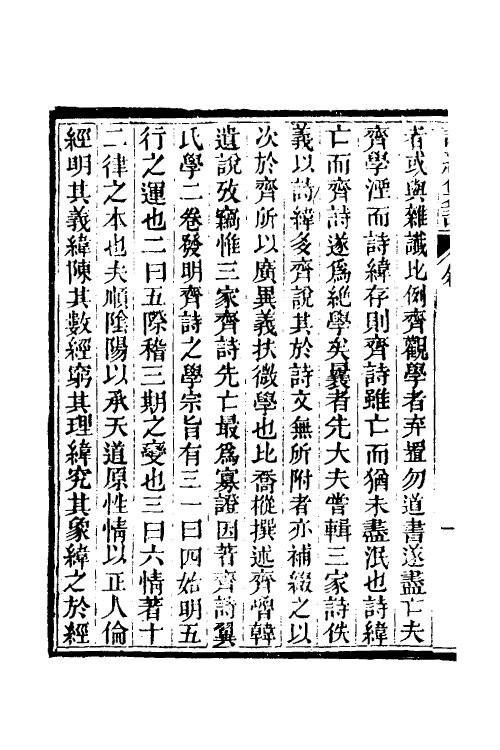 者或與雜讖比例齊觀學者弃置勿道書遂盡亡夫
齊學湮而詩緯存則齊詩雖亡而猶未盡泯也詩緯
亡而齊詩遂爲絕學矣曩者先大夫嘗輯三家詩佚
義以詩緯多齊說其於詩文無所附者亦補綴之以
次於齊所以廣異義扶微學也比喬樅撰述齊魯韓
遺說攷竊惟三家齊詩先亡最爲寡證因著齊詩翼
氏學二卷發明齊詩之學宗旨有三一曰四始明五
行之運也二曰五際稽三期之變也三曰六情著十
二律之本也夫順陰陽以承天道原性情以正人倫
經明其義緯陳其數經窮其理緯究其象緯之於經
一